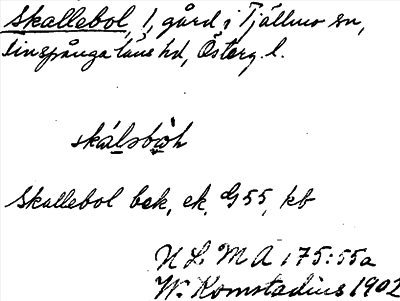 Skallebol, 1, gård i Tjällmo sn,
Finspånga läns hd, Österg. l.
skálsbòh
Skallebol bek, ek, G55, kb
N L. M A 175:55a
W. Komstadius 1902